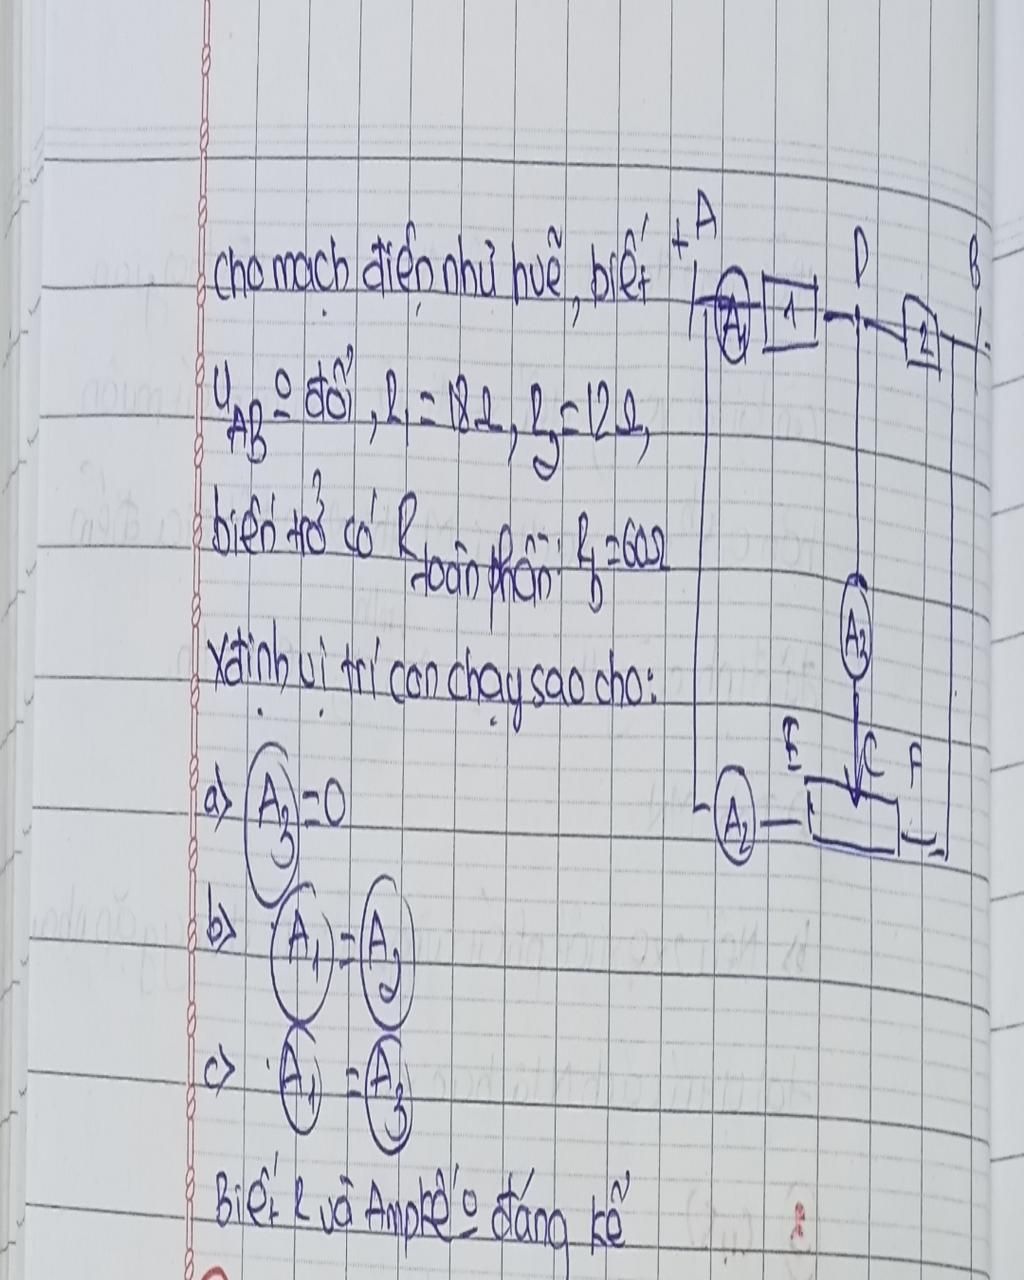 cho mạch điện như huẽ, biết
U_AB º đổi, R₁ = 18Ω, R₂ = 12Ω,
biến trở có R toàn phần: R_b = 60Ω
xđịnh vị trí con chạy sao cho:
a) A₃ = 0
b) A₁ = A₂
c) A₁ = A₃
Biết R và Ampkế º đáng kể
+ A
D
B
A₁
1
2
A₃
E
C
F
A₂